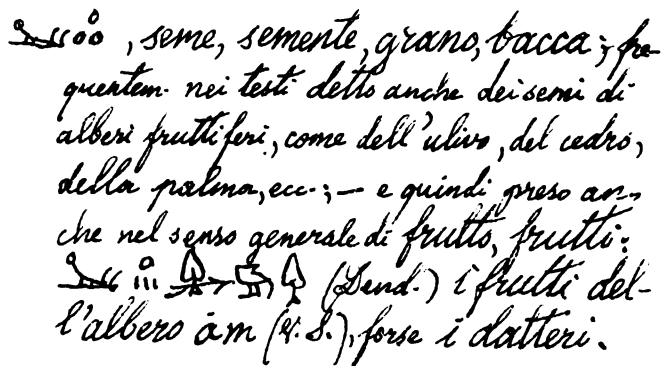 , seme, semente, grano, bacca; fre-
quentem. nei testi detto anche dei semi di
alberi fruttiferi, come dell'ulivo, del cedro,
della palma, ecc.; — e quindi preso an-
che nel senso generale di frutto, frutti:
(Dend.) i frutti del-
l'albero ȧm (V. S.), forse i datteri.